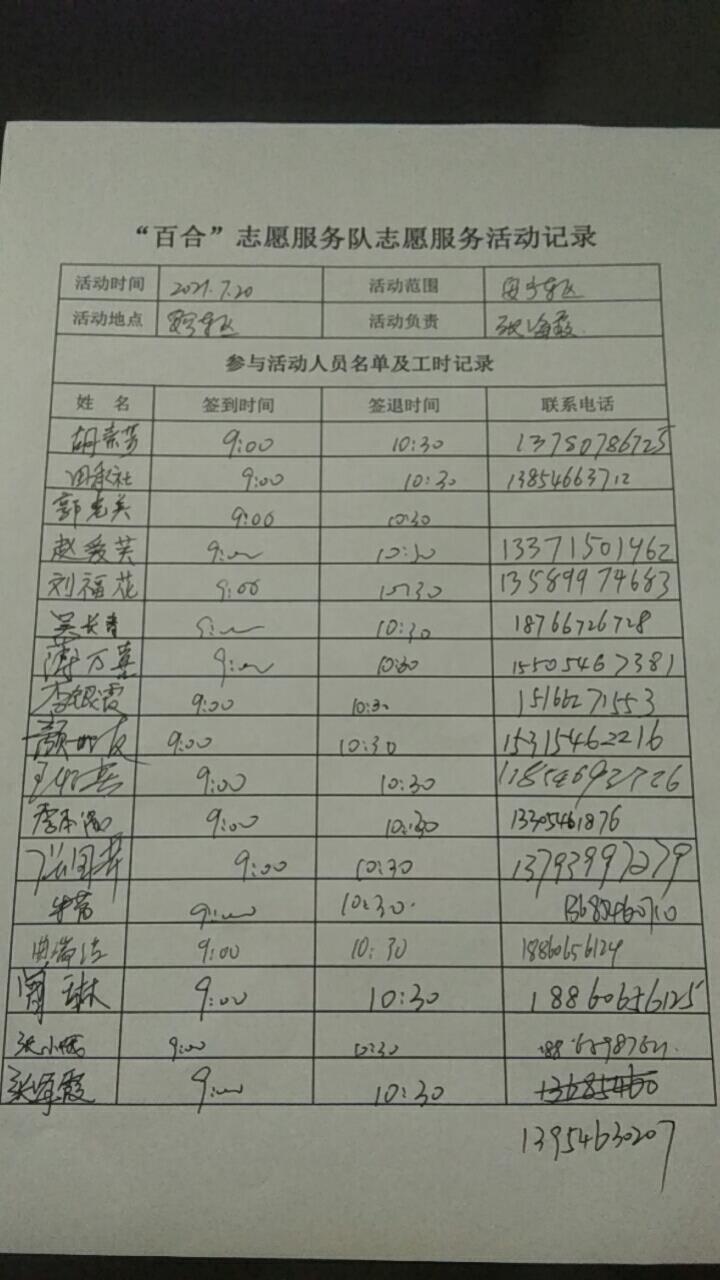 “百合”志愿服务队志愿服务活动记录
活动时间 2021.7.20 活动范围
活动地点 活动负责 张海霞
参与活动人员名单及工时记录
姓 名 签到时间 签退时间 联系电话
胡素芳 9:00 10:30 13780786725
田承社 9:00 10:30 13854663712
郭光美 9:00 10:30
赵爱芙 9:00 10:30 13371501462
刘福花 9:00 10:30 13589974683
吴长青 9:00 10:30 18766726728
薄万喜 9:00 10:30 15505467381
李银霞 9:00 10:30 15166271553
颜 友 9:00 10:30 15315462216
9:00 10:30
李本 9:00 10:30 13305461876
张国华 9:00 10:30 13793997279
9:00 10:30
曲瑞洁 9:00 10:30 18860656124
琳 9:00 10:30 18860656125
张小 9:00 10:30
张海霞 9:00 10:30 13685460
13954630207